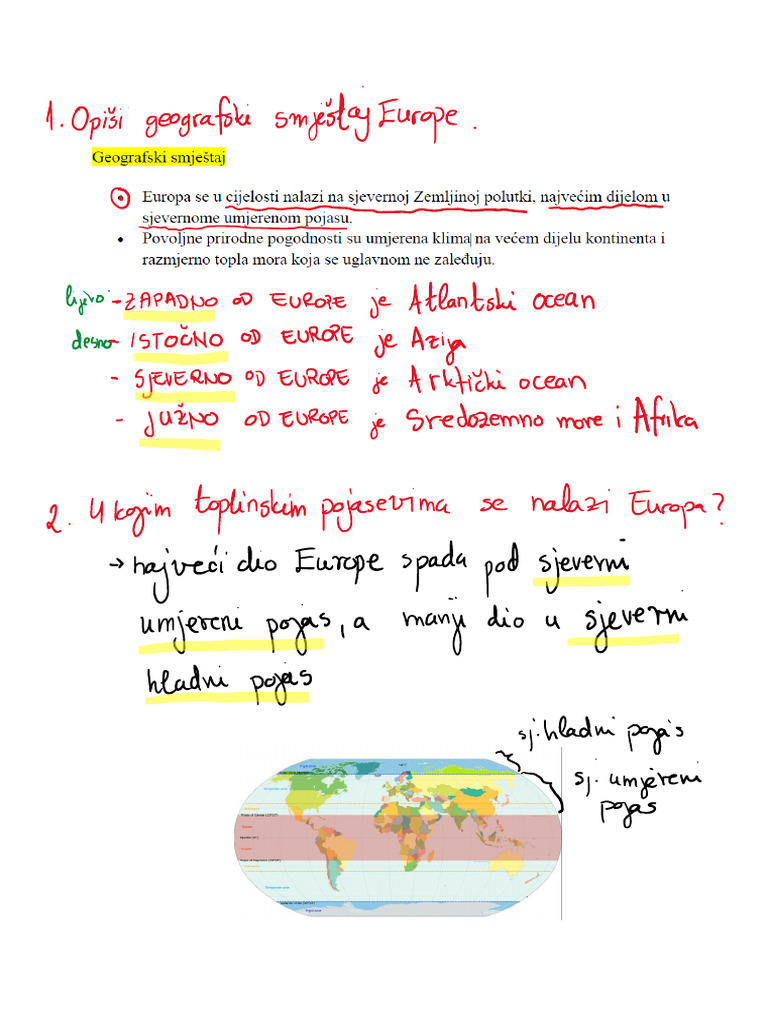 1. Opiši geografski smještaj Europe.
Geografski smještaj
Europa se u cijelosti nalazi na sjevernoj Zemljinoj polutki, najvećim dijelom u
sjevernome umjerenom pojasu.
• Povoljne prirodne pogodnosti su umjerena klima na većem dijelu kontinenta i
razmjerno topla mora koja se uglavnom ne zaleđuju.
lijevo - ZAPADNO OD EUROPE je Atlantski ocean
desno - ISTOČNO OD EUROPE je Azija
- SJEVERNO OD EUROPE je Arktički ocean
- JUŽNO OD EUROPE je Sredozemno more i Afrika
2. U kojim toplinskim pojasevima se nalazi Europa?
→ najveći dio Europe spada pod sjeverni
umjereni pojas, a manji dio u sjeverni
hladni pojas
sj. hladni pojas
sj. umjereni
pojas